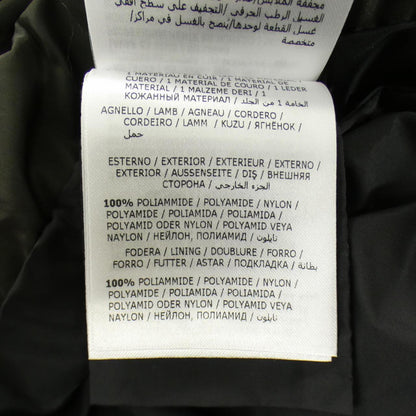 مجففة الملابس
الغسيل الرطب الحرفي/التجفيف على سطح أفقي
غسل القطعة لوحدها/ينصح بالغسل في مراكز
متخصصة
1 MATERIAU EN CUIR / 1 MATERIAL DE
1 MATERIAL DE COURO / 1 LEDER
MATERIAL / 1 MALZEME DERI / 1
КОЖАННЫЙ МАТЕРИАЛ / الخامة 1 من الجلد
AGNELLO / LAMB / AGNEAU / CORDERO /
CORDEIRO / LAMM / KUZU / ЯГНЁНОК /
حمل
ESTERNO / EXTERIOR / EXTERIEUR / EXTERNO /
EXTERIOR / AUSSENSEITE / DIŞ / ВНЕШНЯЯ
СТОРОНА / الجزء الخارجي
100% POLIAMMIDE / POLYAMIDE / NYLON /
POLYAMIDE / POLIAMIDA / POLIAMIDA /
POLYAMID ODER NYLON / POLYAMID VEYA
NAYLON / НЕЙЛОН, ПОЛИАМИД / نايلون
FODERA / LINING / DOUBLURE / FORRO /
FORRO / FUTTER / ASTAR / ПОДКЛАДКА / بطانة
100% POLIAMMIDE / POLYAMIDE / NYLON /
POLYAMIDE / POLIAMIDA / POLIAMIDA /
POLYAMID ODER NYLON / POLYAMID VEYA
NAYLON / НЕЙЛОН, ПОЛИАМИД / نايلون